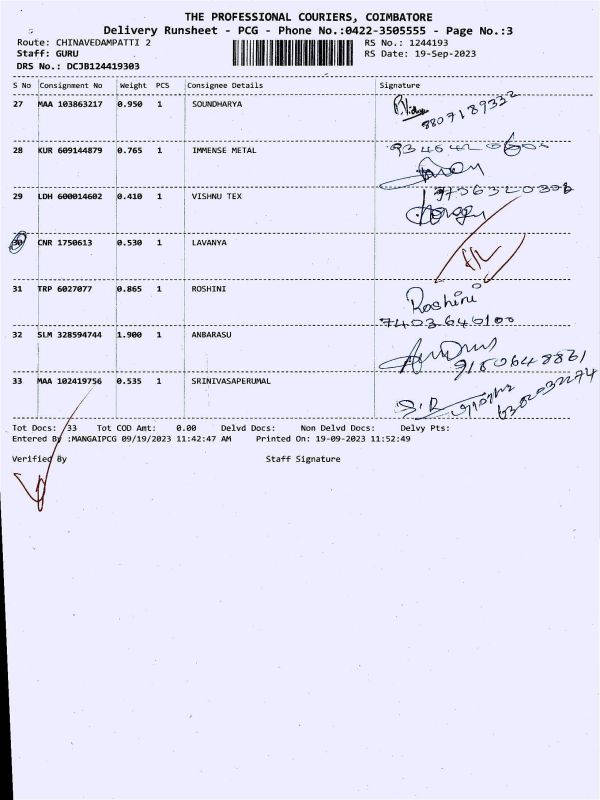 THE PROFESSIONAL COURIERS, COIMBATORE
Delivery Runsheet - PCG - Phone No.:0422-3505555 - Page No.:3
Route: CHINAVEDAMPATTI 2 RS No.: 1244193
Staff: GURU RS Date: 19-Sep-2023
DRS No.: DCJB124419303
S No Consignment No Weight PCS Consignee Details Signature
27 MAA 103863217 0.950 1 SOUNDHARYA
8807189332
28 KUR 609144879 0.765 1 IMMENSE METAL
29 LDH 600014602 0.410 1 VISHNU TEX
9706320308
30 CNR 1750613 0.530 1 LAVANYA
31 TRP 6027077 0.865 1 ROSHINI Roshini
7403640100
32 SLM 328594744 1.900 1 ANBARASU
9150648861
33 MAA 102419756 0.535 1 SRINIVASAPERUMAL
6302032274
Tot Docs: 33 Tot COD Amt: 0.00 Delvd Docs: Non Delvd Docs: Delvy Pts:
Entered By :MANGAIPCG 09/19/2023 11:42:47 AM Printed On: 19-09-2023 11:52:49
Verified By Staff Signature